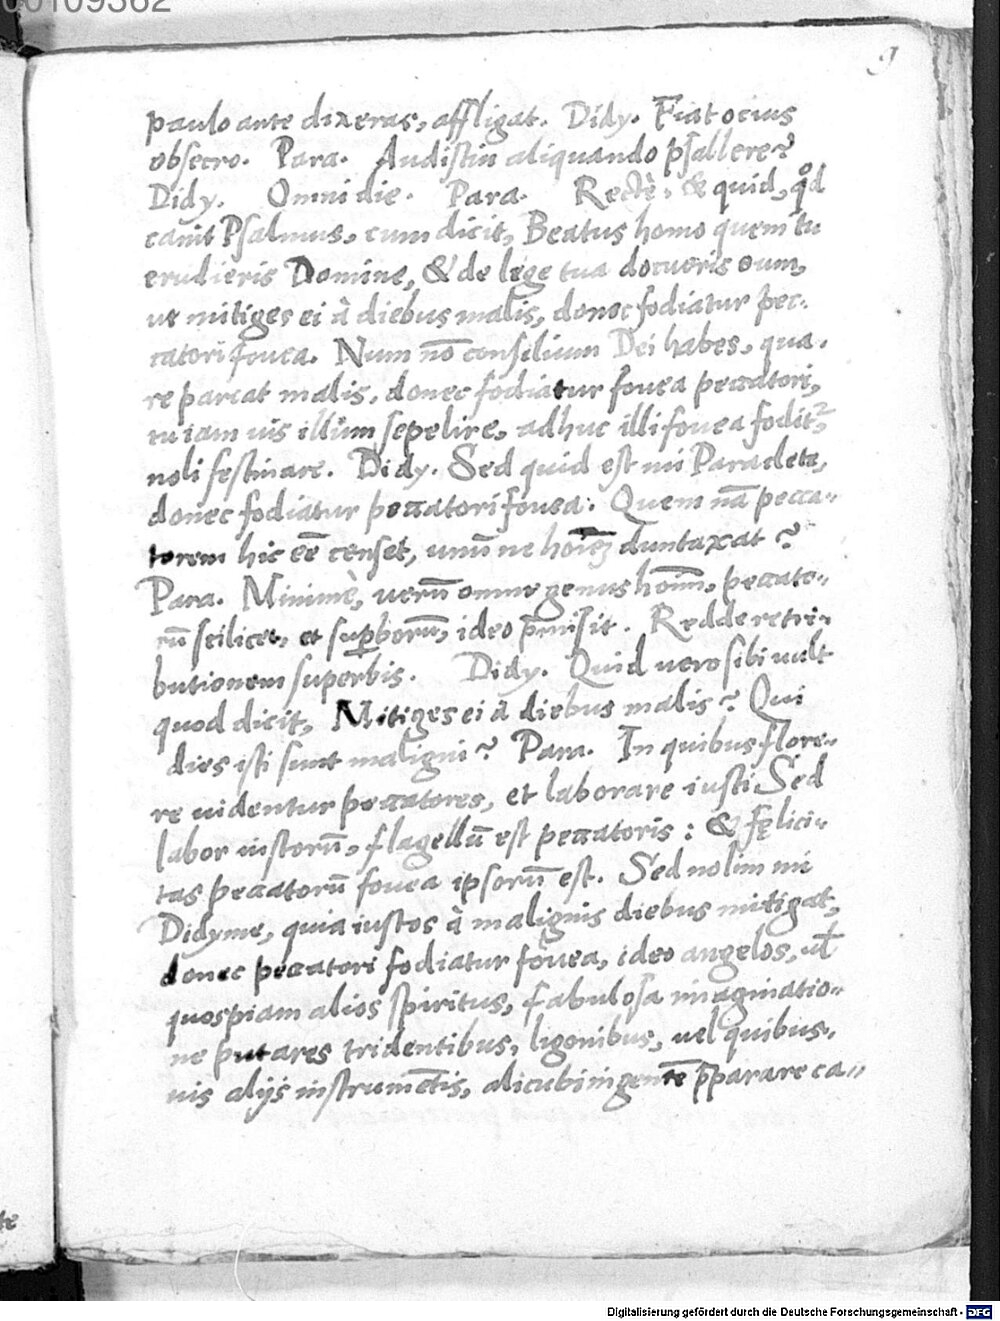 00109362
9
paulo ante dixeras, affligat. Didy. Fiat ocius
obsecro. Para. Audistin aliquando psallere?
Didy. Omni die. Para. Rectè, & quid, qͦd
canit Psalmus, cum dicit, Beatus homo quem tu
erudieris Domine, & de lege tua docueris eum,
ut mitiges ei à diebus malis, donec fodiatur pec-
catori fouea. Num nō consilium Dei habes, qua-
re parcat malis, donec fodiatur fouea peccatori,
tu iam uis illūm sepelire, adhuc illi fouea fodit᷑,
noli festinare. Didy. Sed quid est mi Paraclete,
donec fodiatur peccatori fouea. Quem nā pecca-
torem hic eē censet, unū ne duntaxat?
Para. Minimè, uerū omne genus hoīm, peccato-
rū scilicet, et suꝑborū, ideo p̄misit. Redde retri-
butionem superbis. Didy. Quid uero sibi uult
quod dicit, Mitiges ei à diebus malis? Qui
dies isti sunt maligni? Para. In quibus flore-
re uidentur peccatores, et laborare iusti Sed
labor iustorū, flagellū est peccatoris: & fęlici-
tas peccatorū fouea ipsorū est. Sed nolim mi
Didyme, quia iustos à malignis diebus mitigat,
donec peccatori fodiatur fouea, ideo angelos, ul̄
quospiam alios spiritus, fabulosa imaginatio-
ne putares tridentibus, ligonibus, uel quibus-
uis alijs instrumētis, alicubi ingentē p̄parare ca-
te
Digitalisierung gefördert durch die Deutsche Forschungsgemeinschaft - DFG